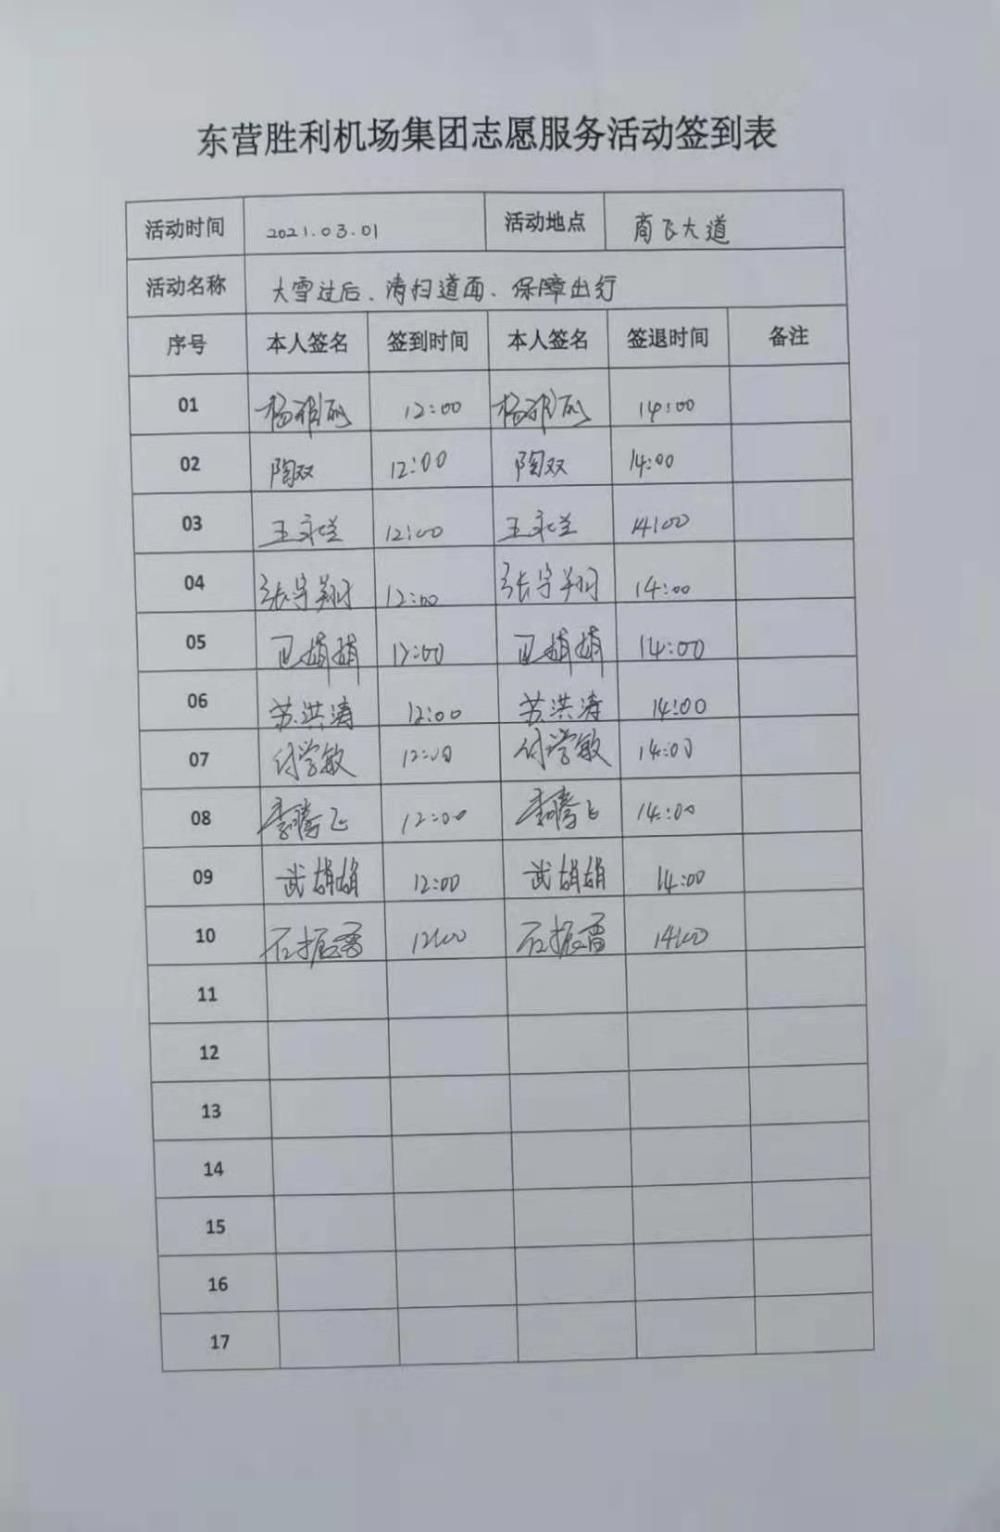 东营胜利机场集团志愿服务活动签到表
活动时间 2021.03.01 活动地点 商飞大道
活动名称 大雪过后、清扫道面、保障出行
序号 本人签名 签到时间 本人签名 签退时间 备注
01 12:00 14:00
02 陶双 12:00 陶双 14:00
03 12:00 14:00
04 张宇翔 12:00 张宇翔 14:00
05 卫娟娟 12:00 卫娟娟 14:00
06 苏洪涛 12:00 苏洪涛 14:00
07 付学敏 12:00 付学敏 14:00
08 李腾飞 12:00 李腾飞 14:00
09 武娟娟 12:00 武娟娟 14:00
10 石振雷 12:00 石振雷 14:00
11
12
13
14
15
16
17